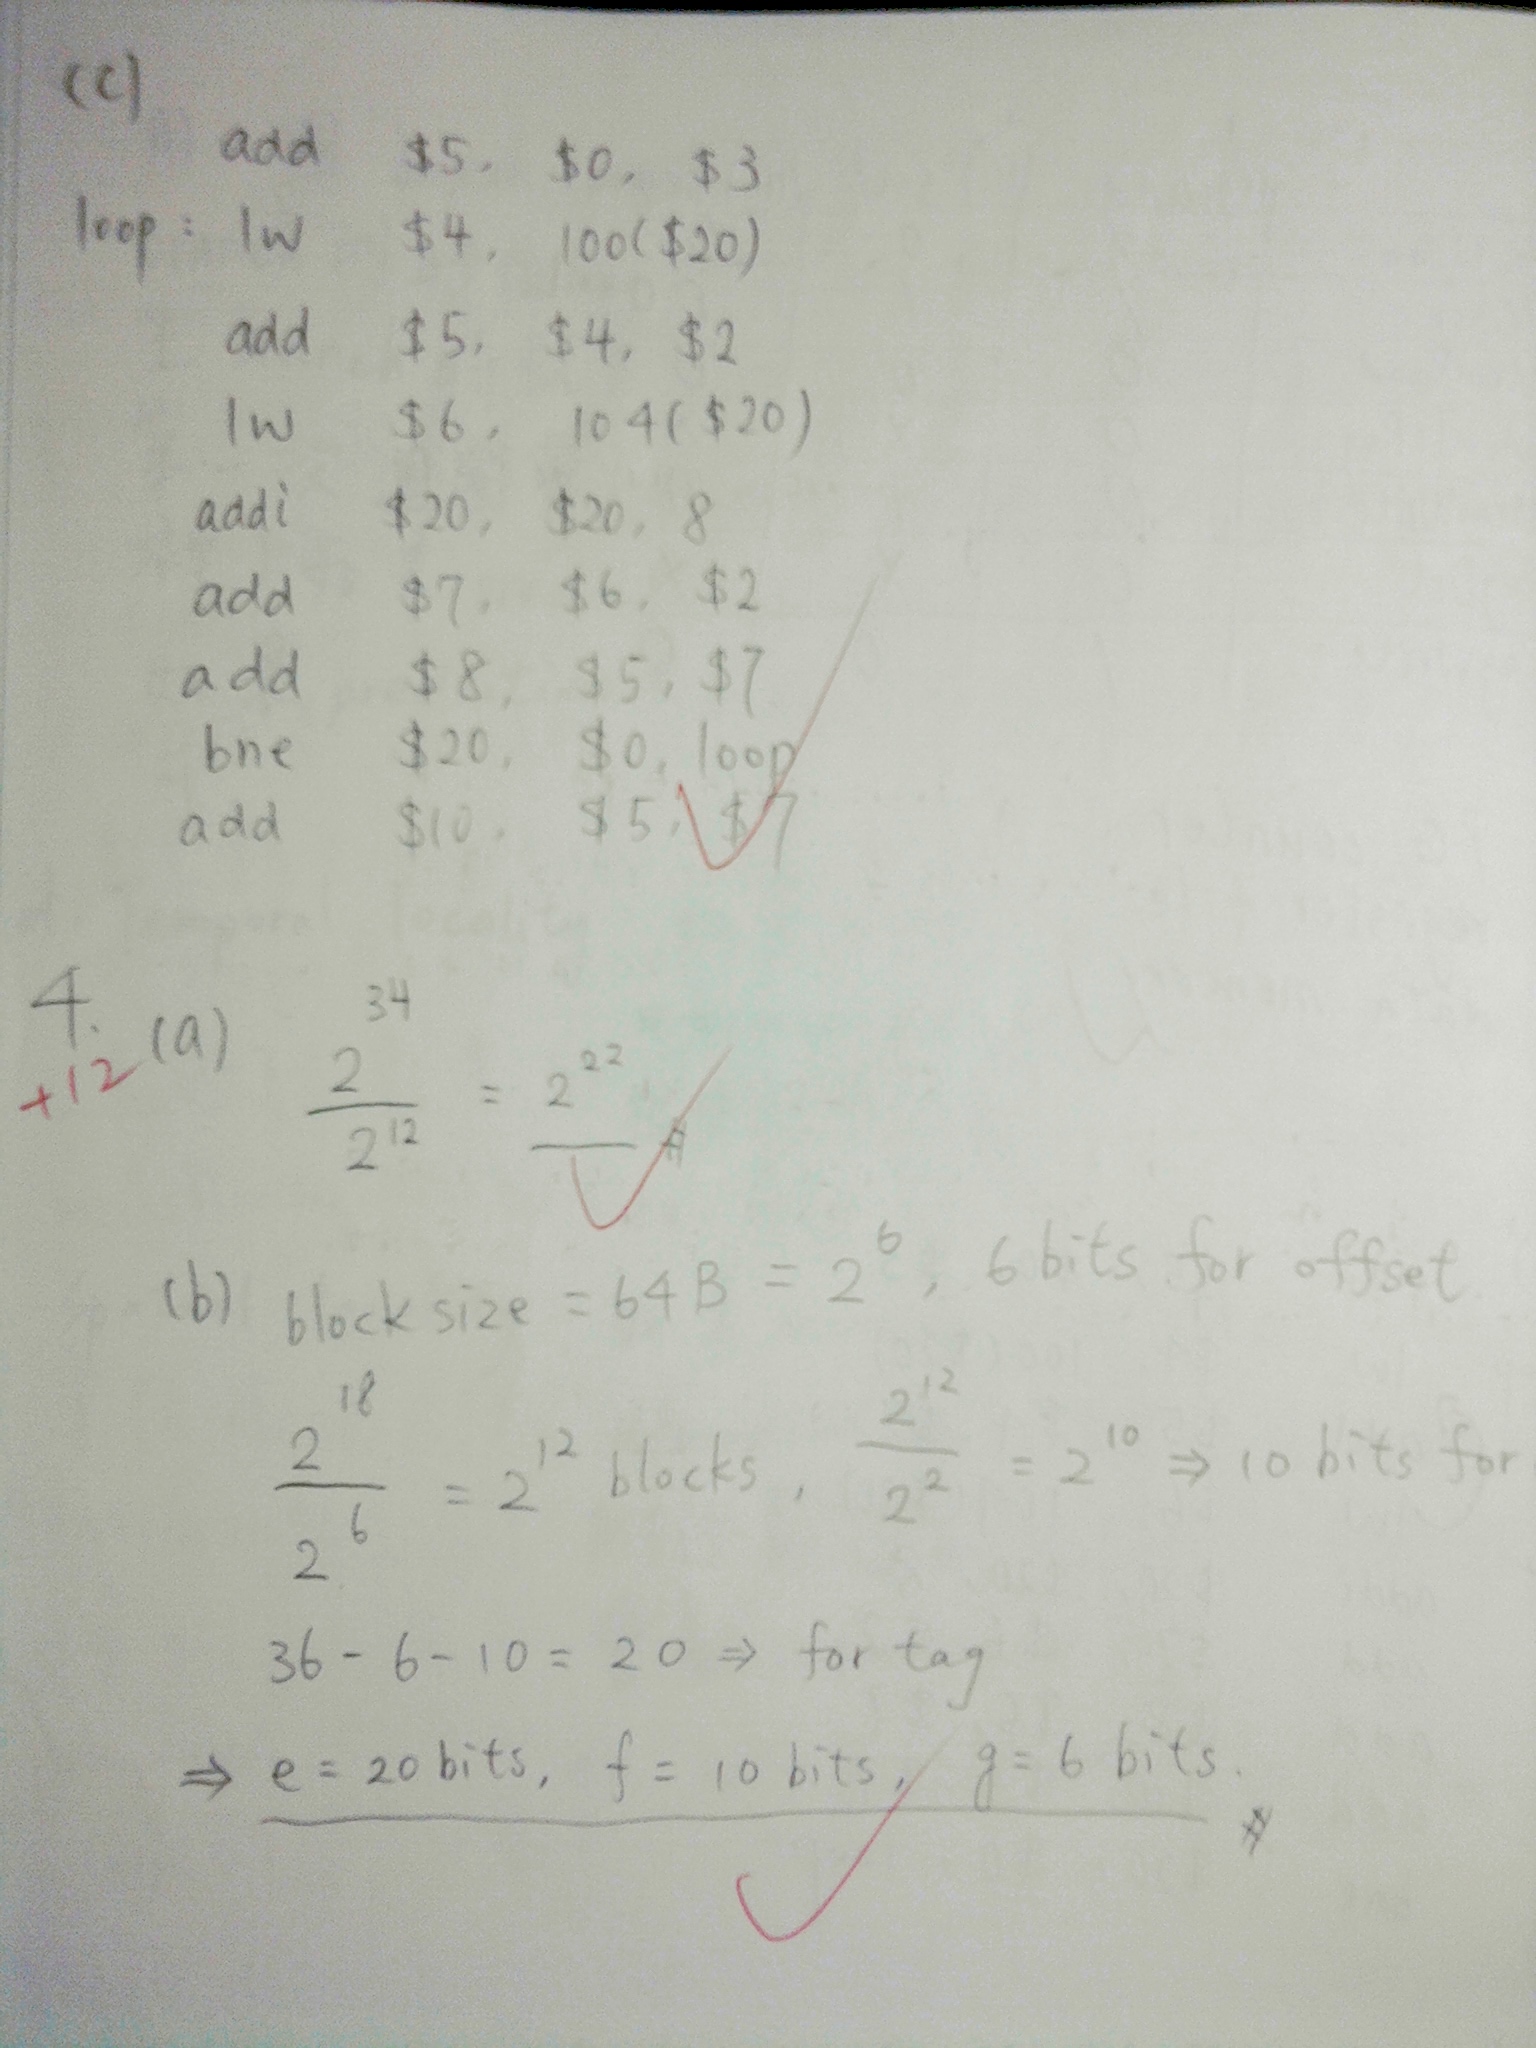 (c)
add $5, $0, $3
loop: lw $4, 100($20)
add $5, $4, $2
lw $6, 104($20)
addi $20, $20, 8
add $7, $6, $2
add $8, $5, $7
bne $20, $0, loop
add $10, $5, $7
4.
+12
(a) 2^34 / 2^12 = 2^22 #
(b) block size = 64B = 2^6, 6 bits for offset
2^18 / 2^6 = 2^12 blocks, 2^12 / 2^2 = 2^10 ⇒ 10 bits for
36 - 6 - 10 = 20 ⇒ for tag
⇒ e = 20 bits, f = 10 bits, g = 6 bits. #